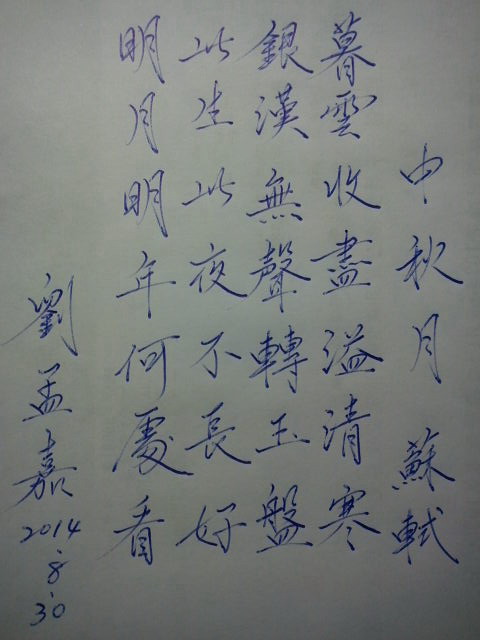 中秋月 蘇軾
暮雲收盡溢清寒
銀漢無聲轉玉盤
此生此夜不長好
明月明年何處看
劉孟嘉 2014.8.30